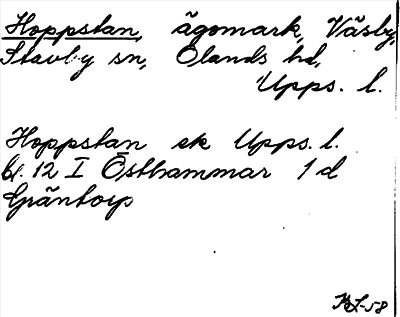 Hoppstan, ägomark, Väsby,
Stavby sn, Olands hd,
Upps. l.
Hoppstan ek Upps. l.
bl. 12 I Östhammar 1 d
Gräntorp
KL-58